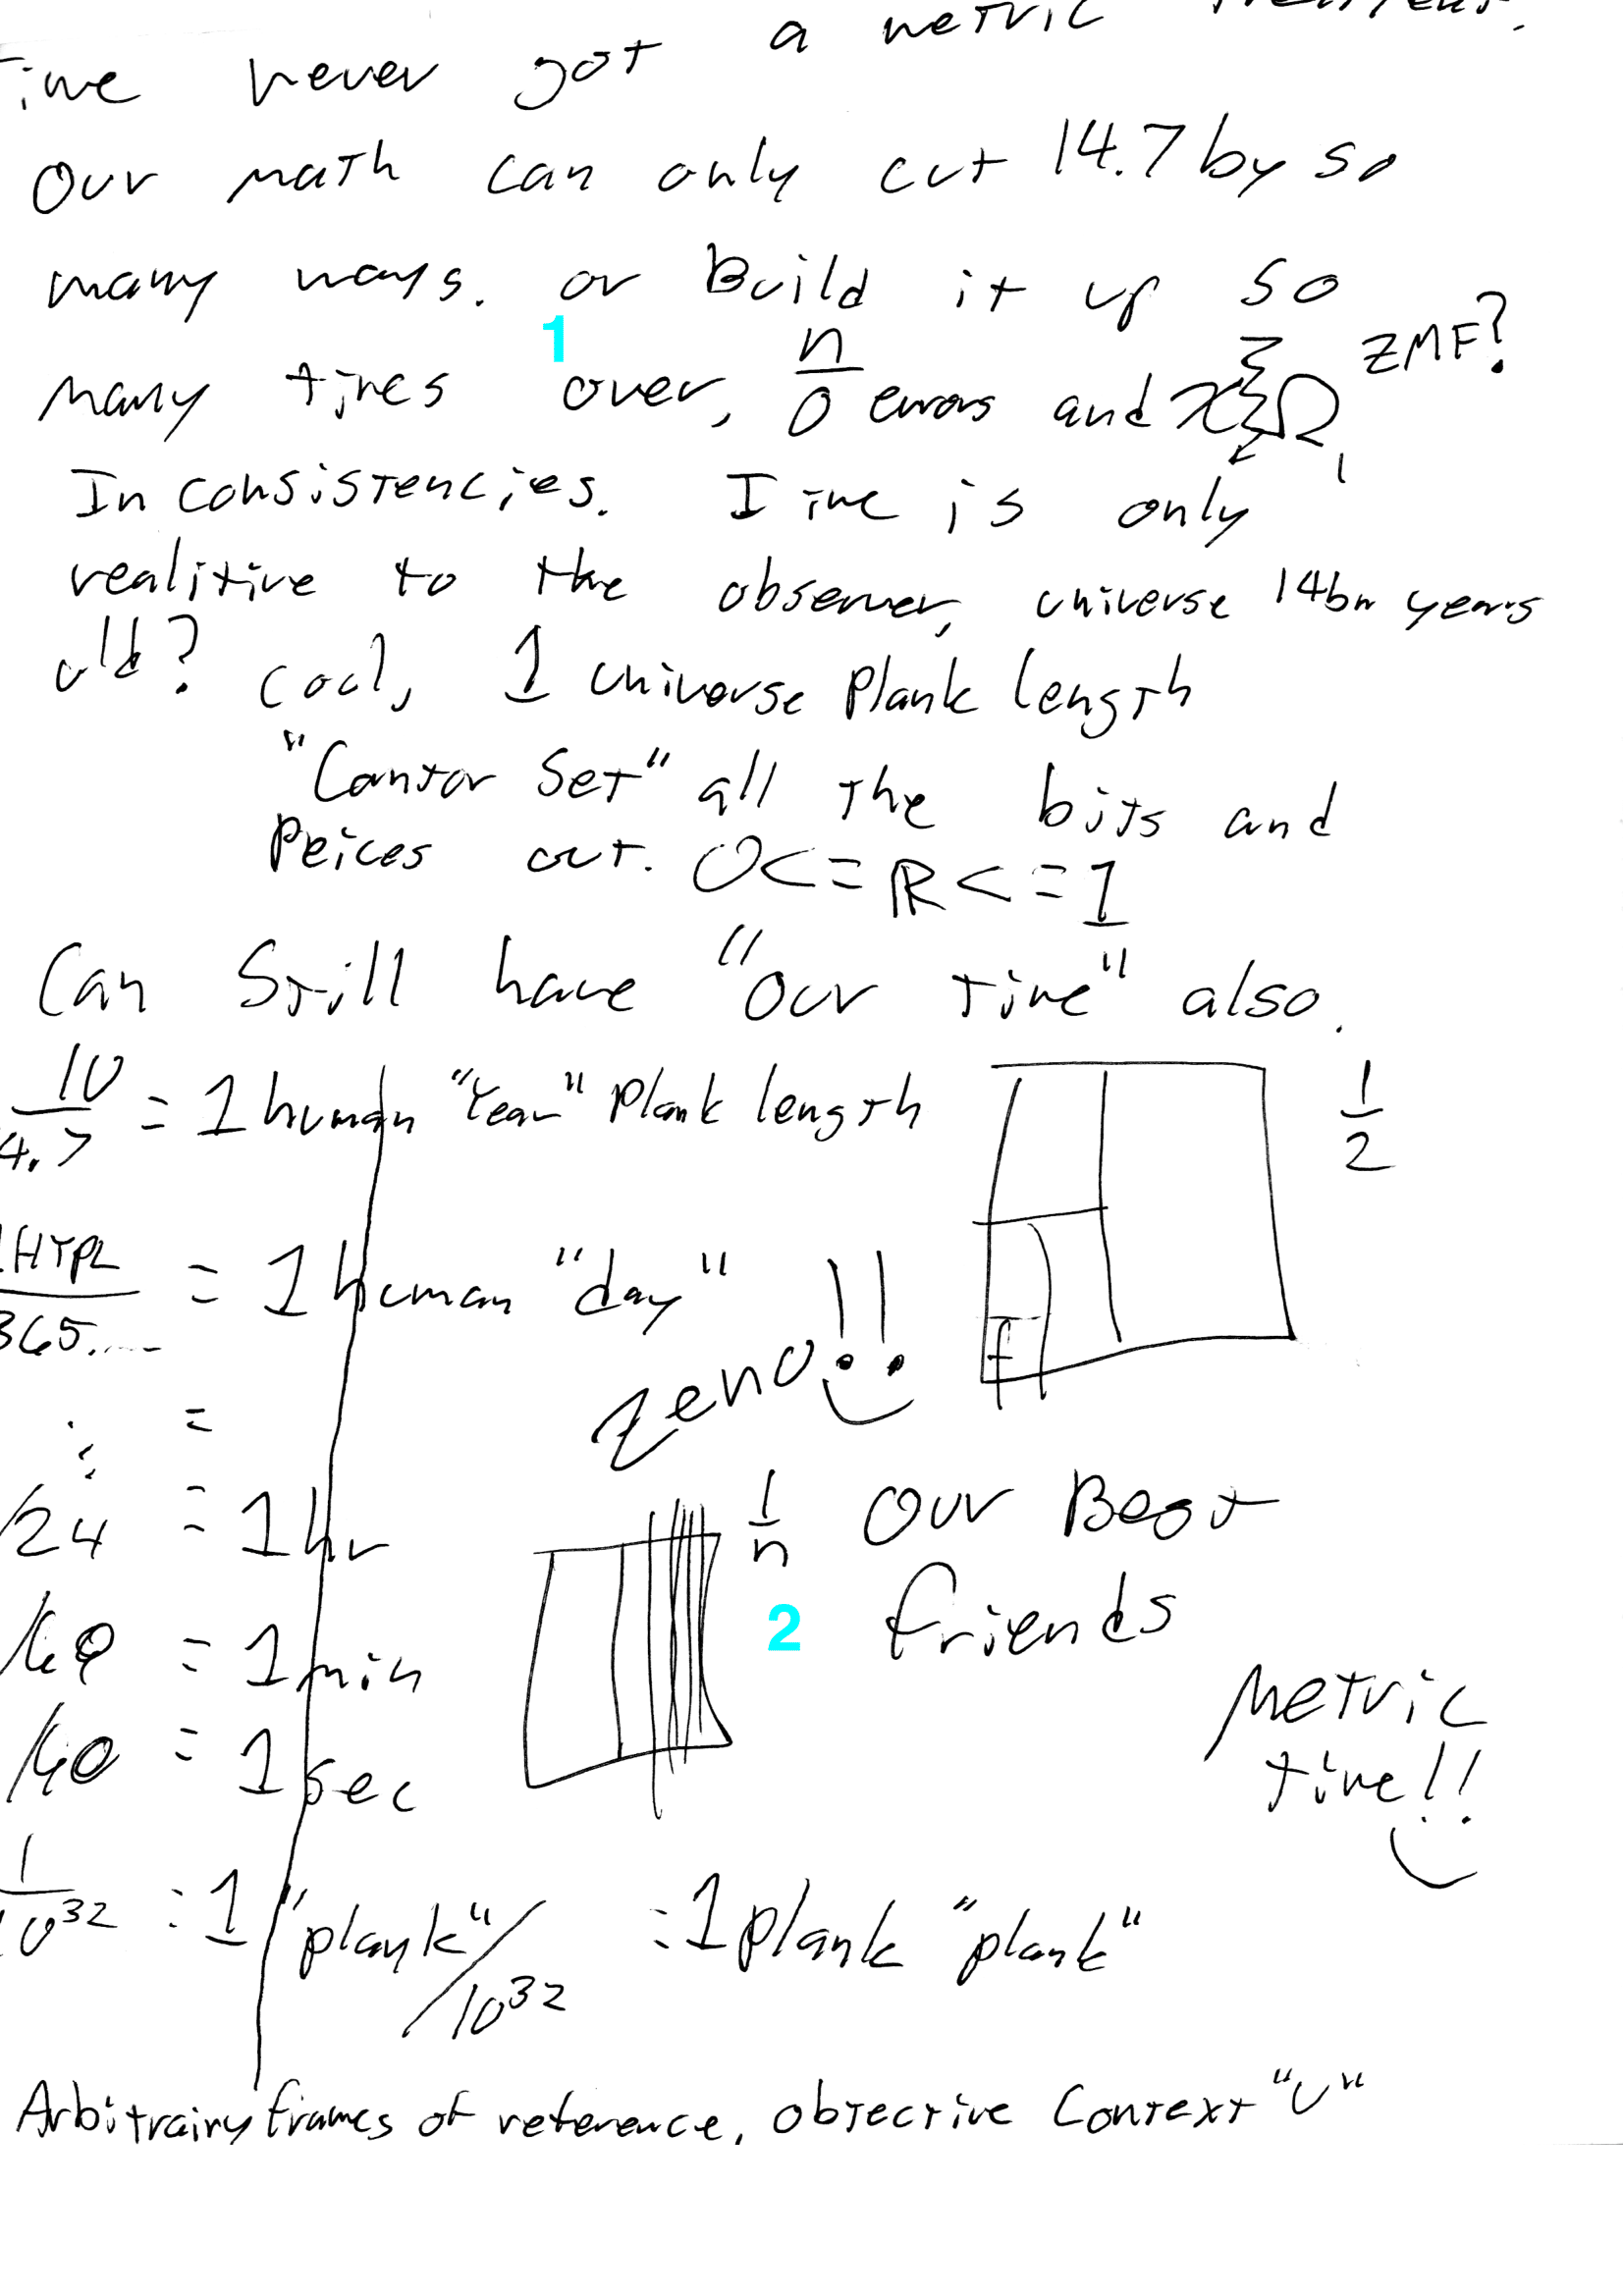 ime never got a metric
Our math can only cut 14.7 by so
many ways. or Build it up so
1
many times over, n/0 errors and
ZMF?
Inconsistencies. Time is only
realitive to the observer, universe 14bn years
old? cool, 1 universe Plank length
"Cantor Set" all the bits and
Peices out. 0<=ℝ<=1
Can Still have "Our time" also.
10/4.7 = 1 human "Year" Plank length
1/2
1HYPL/365.... = 1 human "day"
zeno!!
=
/24 = 1 hr
1/n Our Best
2
friends
/60 = 1 min
/60 = 1 sec
Metric
time!!
1/10^32 = 1 "plank"/10^32 = 1 plank "plank"
Arbitrairy frames of reference, objective Context "U"